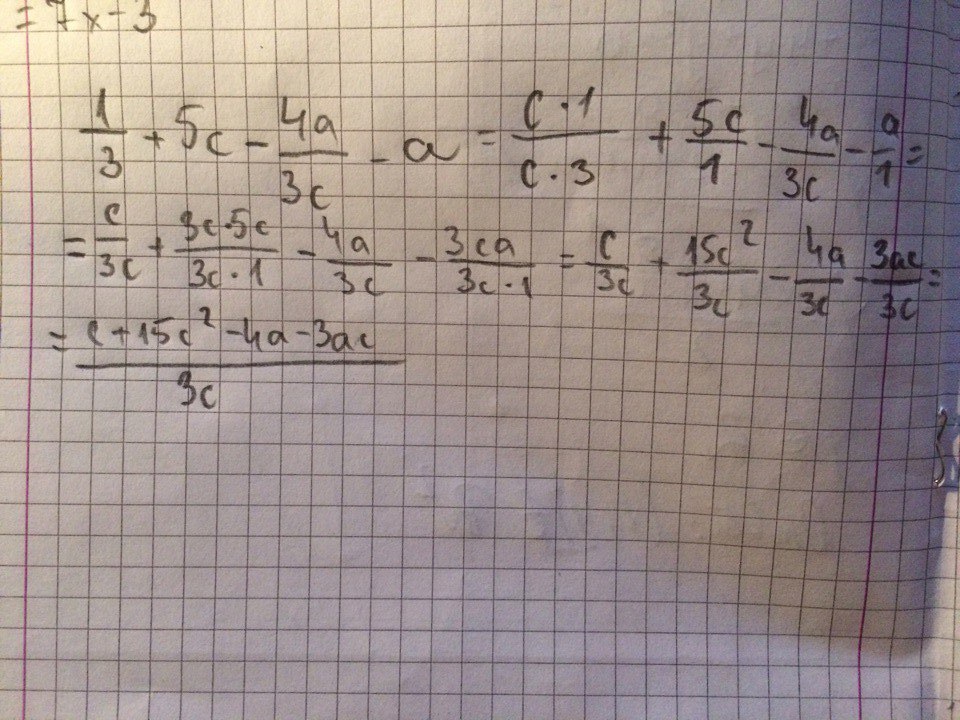 = 7x - 3
1/3 + 5c - 4a/3c - a = c·1/c·3 + 5c/1 - 4a/3c - a/1 =
= c/3c + 3c·5c/3c·1 - 4a/3c - 3ca/3c·1 = c/3c + 15c²/3c - 4a/3c - 3ac/3c =
= c+15c²-4a-3ac/3c